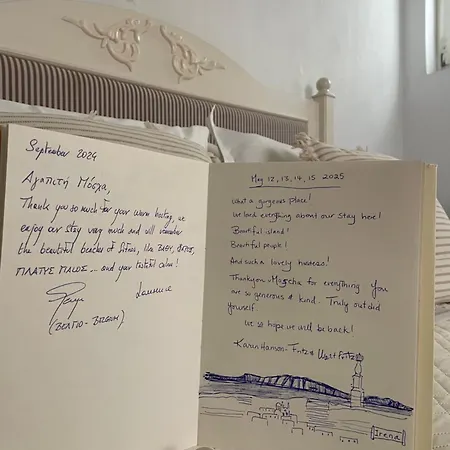 September 2024
Αγαπητή Μόσχα,
Thank you so much for your warm hosting, we
enjoy our stay very much and will remember
the beautiful beaches of Sifnos, like ΒΑΘΥ, ΦΑΡΟΣ,
ΠΛΑΤΥΣ ΓΙΑΛΟΣ ... and your tasteful cakes!
Laurence
(ΒΕΛΓΙΟ - BELGIUM).
May 12, 13, 14, 15 2025
What a gorgeous place!
We loved everything about our stay here!
Beautiful island!
Beautiful people!
And such a lovely hostess!
Thank you Moscha for everything You
are so generous & kind. Truly out did
yourself.
We so hope we will be back!
Karen Hanson-Fritz & Matt Fritz
Irena